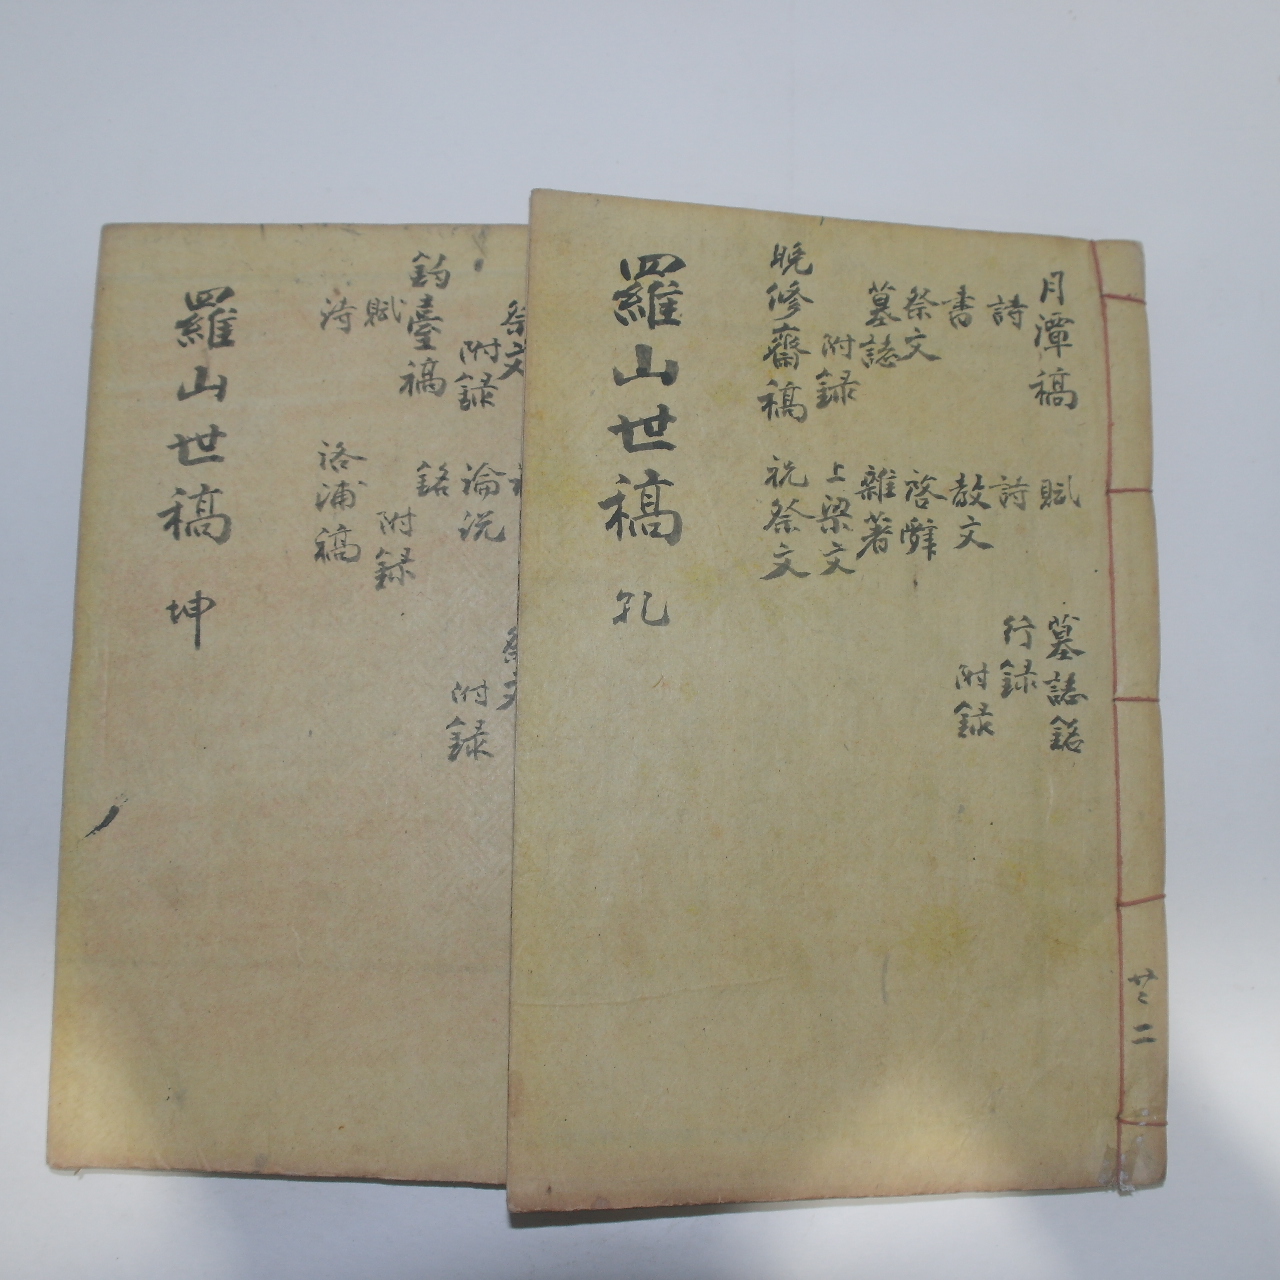 月潭稿 賦 墓誌銘
詩 詩 行錄
書 教文 附錄
祭文 啓辭
墓誌 雜著
附錄 上梁文
晩修齋稿 祝祭文
羅山世稿 乾
共二
祭文 祭文
附錄 論說 附錄
鈞臺稿 銘
賦 附錄
詩 洛浦稿
羅山世稿 坤